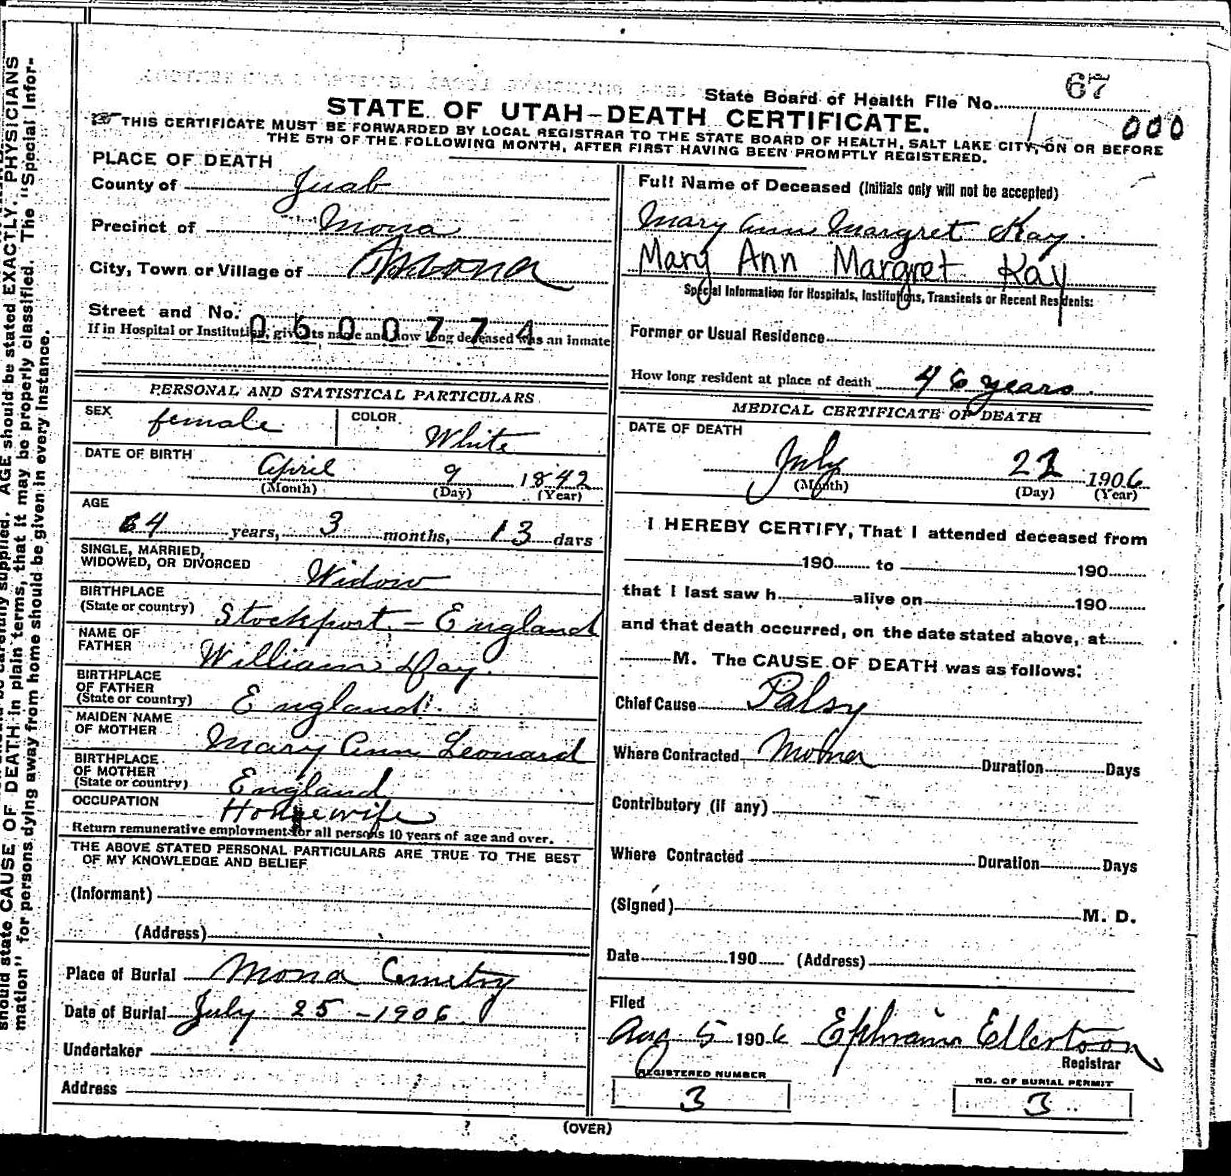 State Board of Health File No. 67
000
STATE OF UTAH—DEATH CERTIFICATE.
THIS CERTIFICATE MUST BE FORWARDED BY LOCAL REGISTRAR TO THE STATE BOARD OF HEALTH, SALT LAKE CITY, ON OR BEFORE
THE 5TH OF THE FOLLOWING MONTH, AFTER FIRST HAVING BEEN PROMPTLY REGISTERED.
PLACE OF DEATH
County of Juab
Precinct of Mona
City, Town or Village of Mona
Street and No.
0600774
If in Hospital or Institution, give its name and how long deceased was an inmate
PERSONAL AND STATISTICAL PARTICULARS
SEX female COLOR White
DATE OF BIRTH April 9 1842
(Month) (Day) (Year)
AGE
64 years, 3 months, 13 days
SINGLE, MARRIED,
WIDOWED, OR DIVORCED Widow
BIRTHPLACE
(State or country) Stockport - England
NAME OF
FATHER William Kay
BIRTHPLACE
OF FATHER
(State or country) England
MAIDEN NAME
OF MOTHER Mary Ann Leonard
BIRTHPLACE
OF MOTHER
(State or country) England
OCCUPATION Housewife
Return remunerative employment for all persons 10 years of age and over.
THE ABOVE STATED PERSONAL PARTICULARS ARE TRUE TO THE BEST
OF MY KNOWLEDGE AND BELIEF
(Informant)
(Address)
Place of Burial Mona Cemetry
Date of Burial July 25 - 1906
Undertaker
Address
Full Name of Deceased (Initials only will not be accepted)
Mary Ann Margret Kay
Mary Ann Margret Kay
Special Information for Hospitals, Institutions, Transients or Recent Residents:
Former or Usual Residence
How long resident at place of death 46 years
MEDICAL CERTIFICATE OF DEATH
DATE OF DEATH
July 22 1906
(Month) (Day) (Year)
I HEREBY CERTIFY, That I attended deceased from
190 to 190
that I last saw h alive on 190
and that death occurred, on the date stated above, at
M. The CAUSE OF DEATH was as follows:
Chief Cause Palsy
Where Contracted Mona Duration Days
Contributory (if any)
Where Contracted Duration Days
(Signed) M. D.
Date 190 (Address)
Filed
Aug 5 1906 Ephraim Ellertson
Registrar
REGISTERED NUMBER
3
NO. OF BURIAL PERMIT
3
(OVER)
should state CAUSE OF DEATH in plain terms, that it may be properly classified. The "Special Infor-
mation" for persons dying away from home should be given in every instance.